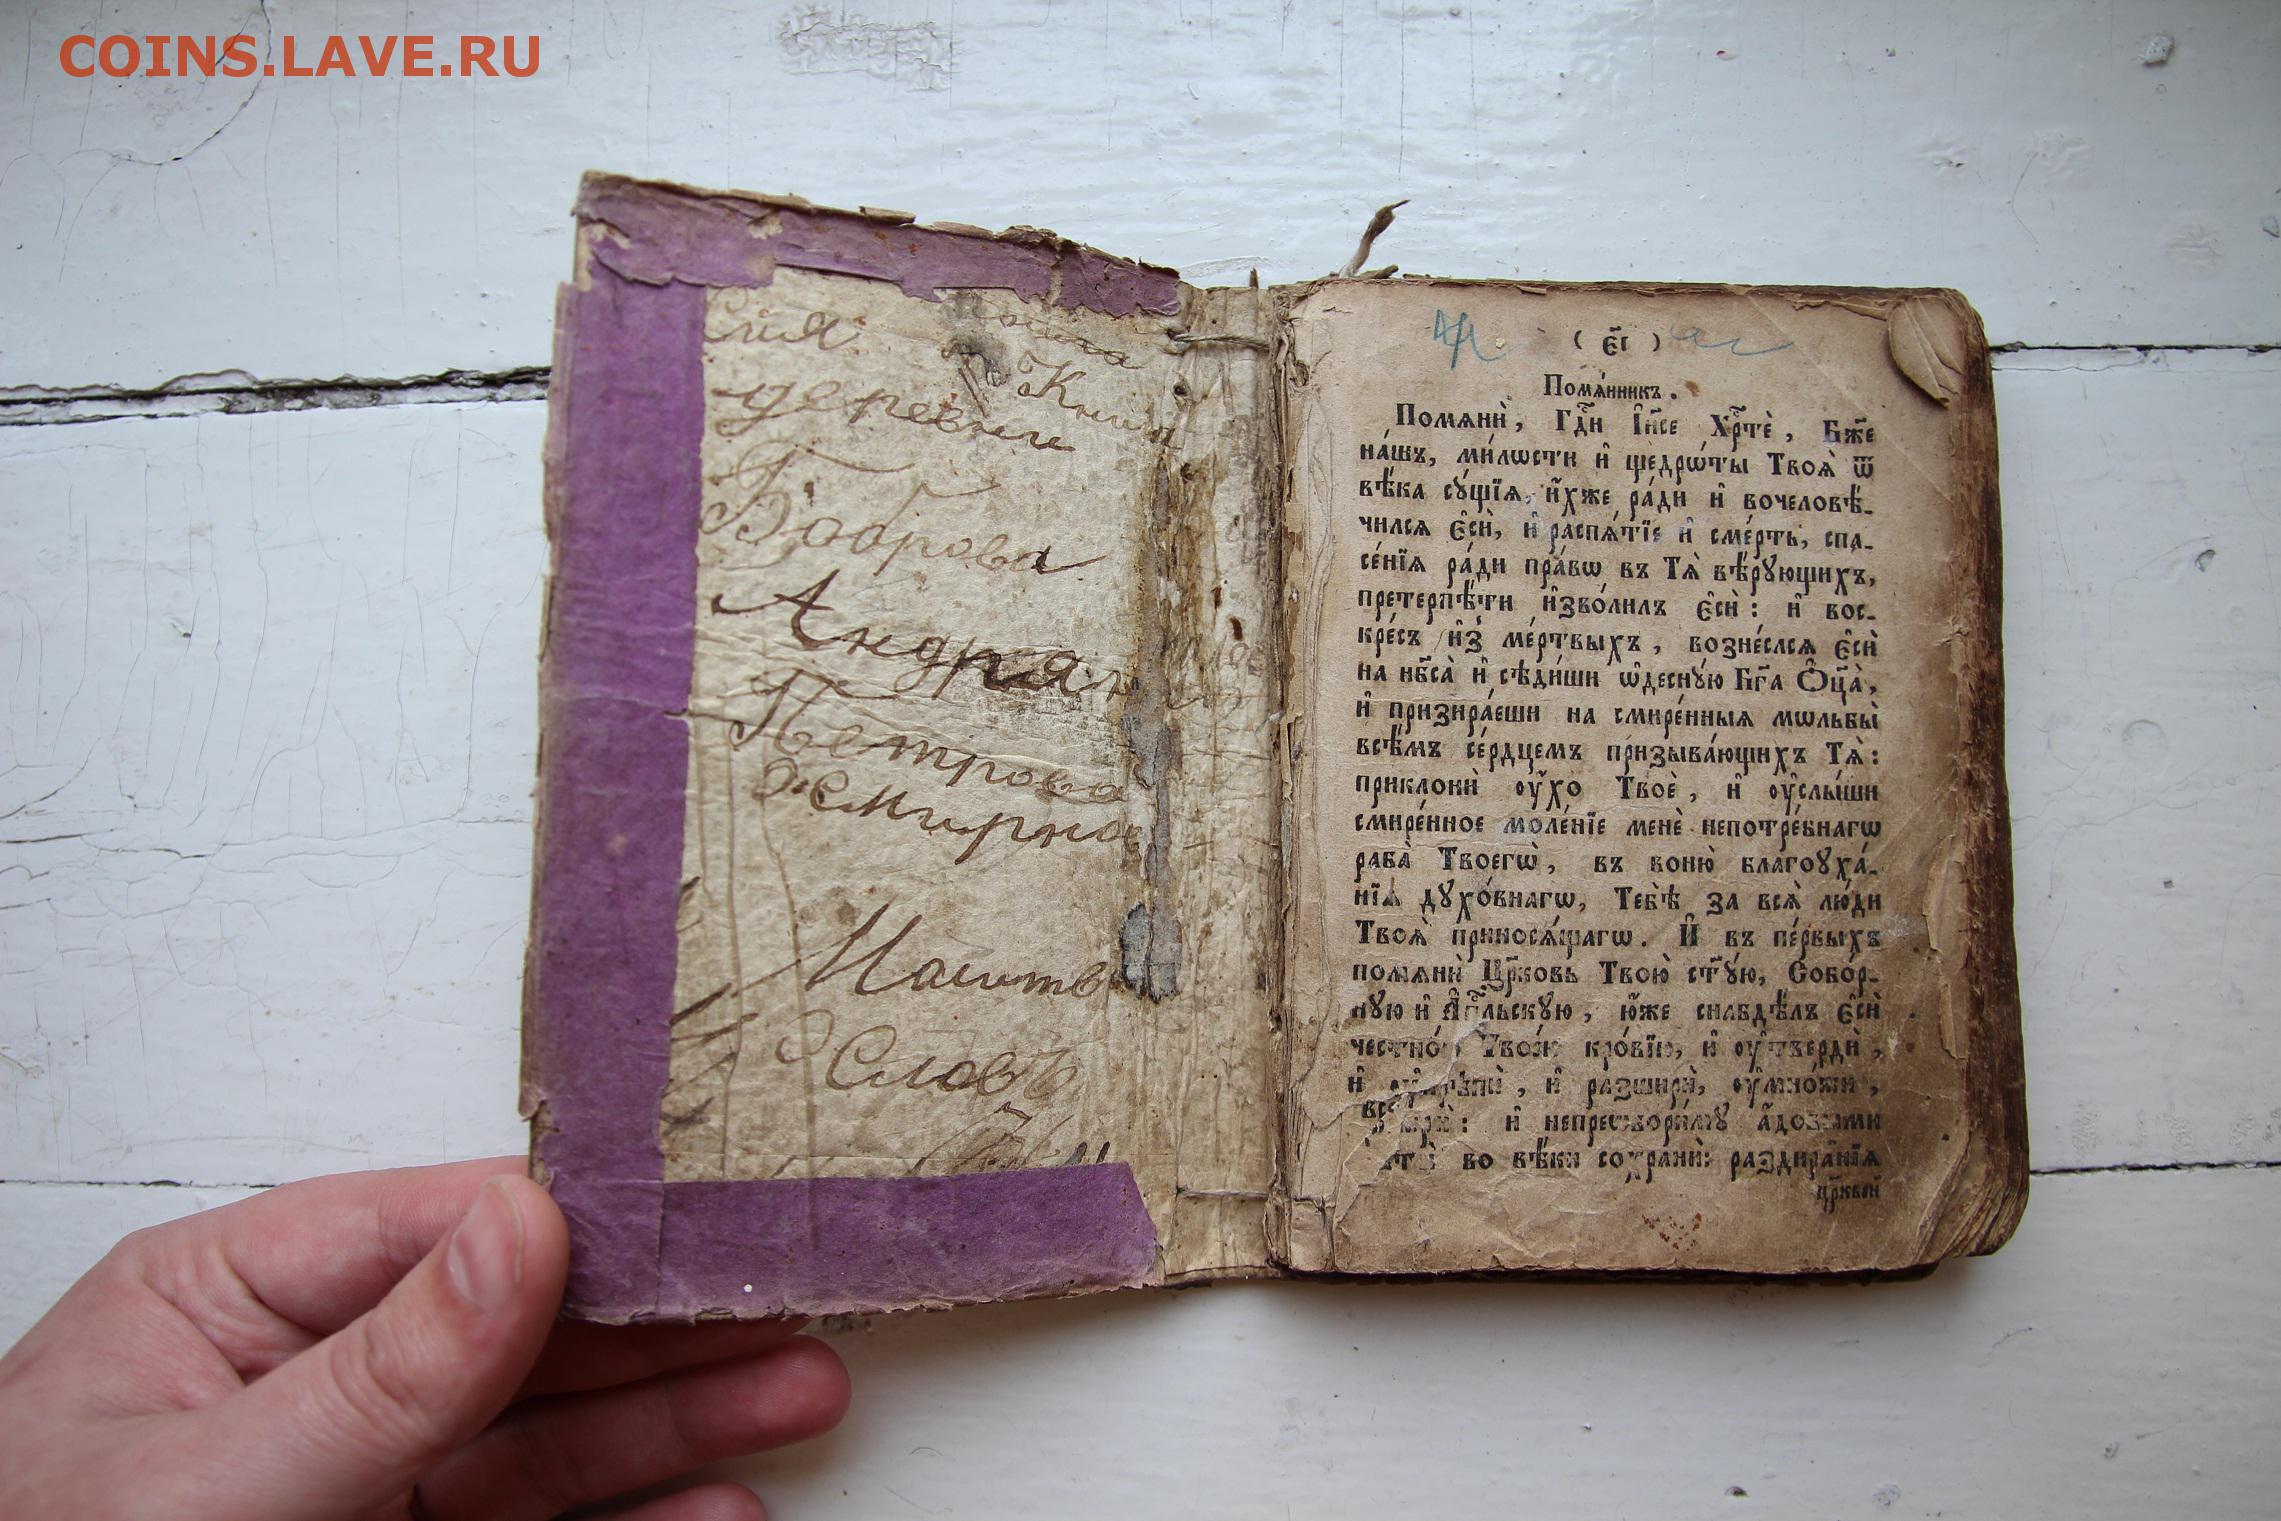 COINS.LAVE.RU
Сия
Книга
деревни
Боброва
Андрея
Петрова
Смирно
Молитв
Словъ
( є҃і )
Помѧ́нникъ.
Помѧнѝ, Гдⷭ҇и І҆и҃се Хрⷭ҇тѐ, Бж҃е
на́шъ, ми́лѡсти и҆ щедрѡ́ты Твоѧ̀ ѿ
вѣ́ка сꙋ́щїѧ, и҆́хже ра́ди и҆ вочеловѣ́-
чилсѧ є҆сѝ, и҆ распѧ́тїе и҆ сме́рть, спа-
се́нїѧ ра́ди пра́вѡ въ Тѧ̀ вѣ́рꙋющихъ,
претерпѣ́ти и҆зво́лилъ є҆сѝ: и҆ вос-
кре́съ и҆з̾ ме́ртвыхъ, вознеслсѧ є҆сѝ
на нб҃са̀ и҆ сѣди́ши ѡ҆деснꙋ́ю Бг҃а Ѻ҆ц҃а̀,
и҆ призира́еши на смире́нныѧ мѡльбы̀
всѣ́мъ се́рдцемъ призыва́ющихъ Тѧ̀:
приклонѝ оу҆́хо Твоѐ, и҆ оу҆слы́ши
смире́нное моле́нїе менѐ непотре́бнагѡ
раба̀ Твоегѡ̀, въ воню̀ благоꙋха́-
нїѧ дꙋхо́внагѡ, Тебѣ̀ за всѧ̀ лю́ди
Твоѧ̀ приносѧ́щагѡ. И҆ въ пе́рвыхъ
помѧнѝ Цр҃ковь Твою̀ ст҃ꙋ́ю, Собо́р-
нꙋю и҆ А҆пⷭ҇льскꙋю, ю҆́же снабдѣ́лъ є҆сѝ
честно́ю Твое́ю кро́вїю, и҆ оу҆твердѝ,
и҆ оу҆крѣпѝ, и҆ разширѝ, оу҆мно́жи,
и҆ непреѡбори́мꙋ а҆́довыми
во вѣ́ки сохранѝ: раздира́нїѧ
цр҃квей